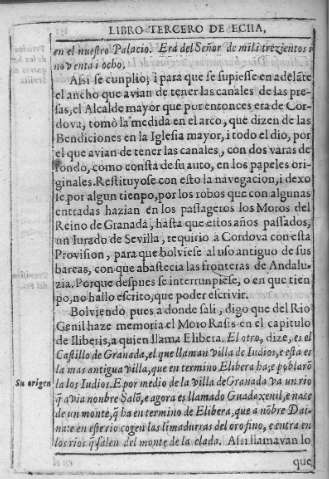 LIBRO TERCERO DE ECIIA,
en el nuestro Palacio. Era del Señor de mil i trezientos i
noventa i ocho.
Assi se cunplio; i para que se supiesse en adelãte
el ancho que avian de tener las canales de las pre-
sas, el Alcalde mayor que por entonces era de Cor-
dova, tomò la medida en el arco, que dizen de las
Bendiciones en la Iglesia mayor, i todo el dio, por
el que avian de tener las canales, con dos varas de
fondo, como consta de su auto, en los papeles ori-
ginales. Restituyose con esto la navegacion, i dexo
se por algun tienpo, por los robos que con algunas
entradas hazian en los passageros los Moros del
Reino de Granada, hasta que estos años passados,
un Iurado de Sevilla, requirio a Cordova con esta
Provision, para que bolviese al uso antiguo de sus
barcas, con que abastecia las fronteras de Andalu-
zia. Porque despues se interrunpiesse, o en que tien
po, no hallo escrito, que poder escrivir.
Bolviendo pues a donde sali, digo que del Rio
Genil haze memoria el Moro Rasis en el capitulo
de Iliberis, a quien llama Elibera. El otro, dize, es el
Castillo de Granada, el que llaman villa de Iudios, e esta es
la mas antigua villa, que en termino Elibera ha, e poblarõ
Su origen
la los Iudios. E por medio de la villa de Granada va un rio
q̃ avia nonbre Salõ, e agora es llamado Guadaxenil, e nace
de un monte, q̃ ha en termino de Elibera, que a nõbre Dai-
na e en este rio cogen las limaduras del oro fino, e entra en
los rios q̃ salen del monte de la elada. Assi llamavan lo
que